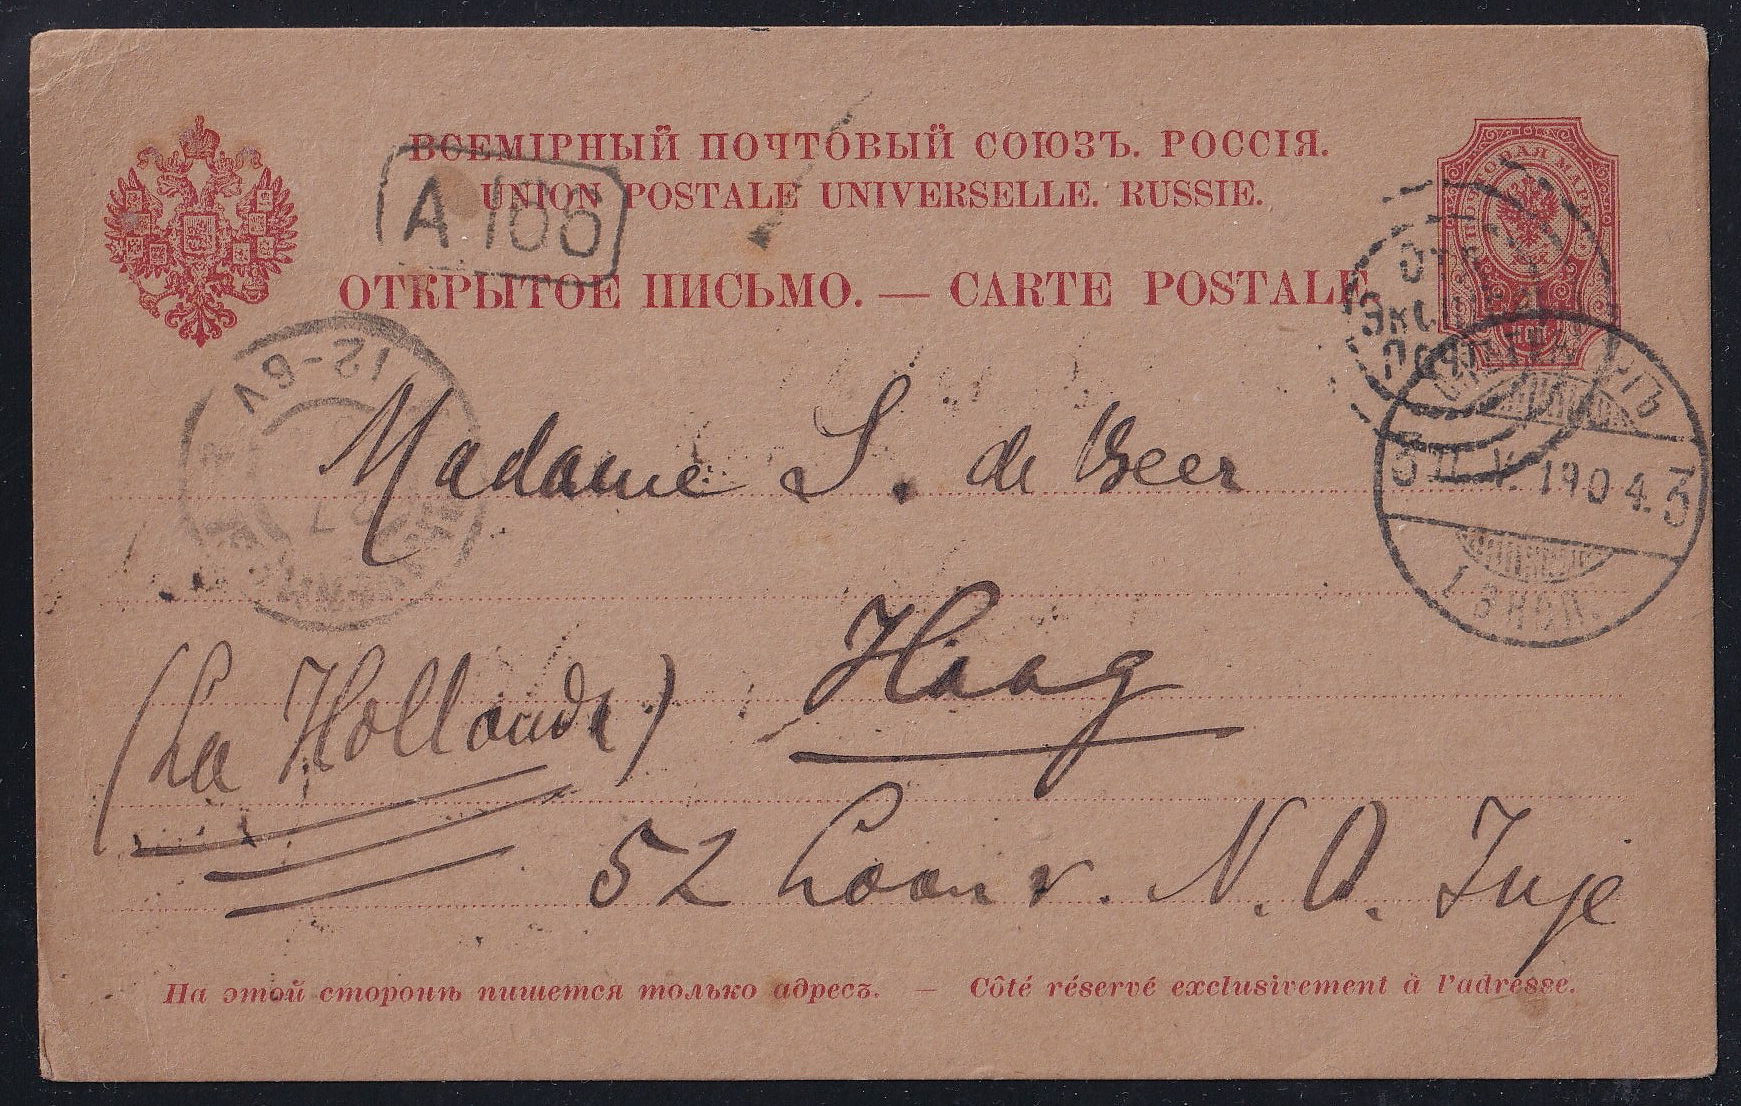 ВСЕМІРНЫЙ ПОЧТОВЫЙ СОЮЗЪ. РОССІЯ.
UNION POSTALE UNIVERSELLE. RUSSIE.
A 106
ОТКРЫТОЕ ПИСЬМО. — CARTE POSTALE
12-6V
Madame S. de Beer
3 11. V. 1904. 3
1 ЭКСП.
Haag
(La Hollande)
52 Laan v. N. O. Inje
На этой сторонѣ пишется только адресъ. — Côté réservé exclusivement à l'adresse.